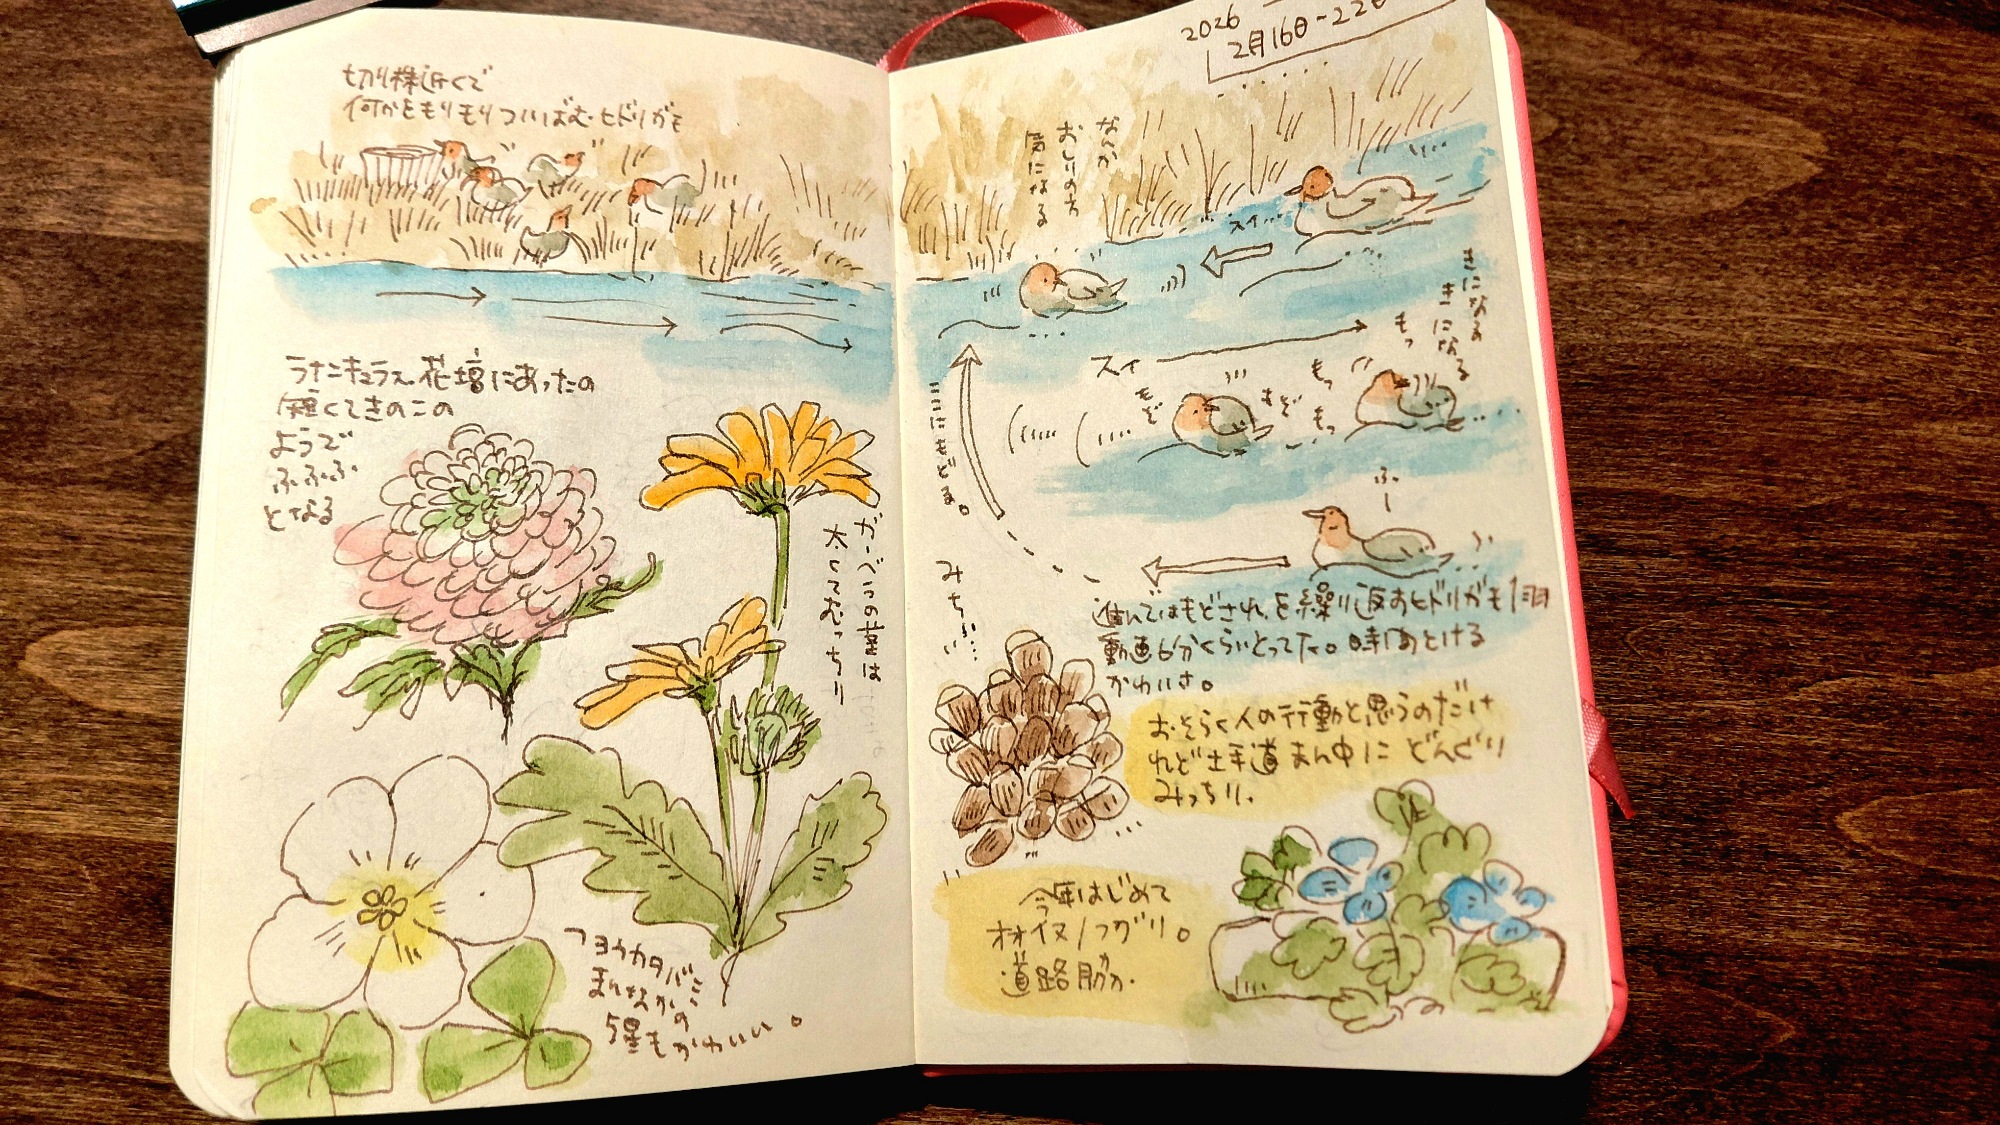 切り株近くで
何かをもりもりついばむヒドリガモ
ラナンキュラス。花壇にあったの
短くてきのこの
ようで
ふふふ
となる
ガーベラの茎は
太くてむっちり
フヨウカタバミ
まんなかの
5星もかわいい。
2026
2月16日~22日
なんか
おしりの方
気になる
スイ…
きになる
きになる
スイ
もぞ
もぞ
もっ
もっ
もっ
ふー
ここにもどる。
進んではもどされ、を繰り返すヒドリガモ1羽
動画6分くらいとってた。時間とける
かわいさ。
みちぃ…
おそらく人の行動と思うのだけ
れど土手道まん中に どんぐり
みっちり。
今年はじめて
オオイヌノフグリ。
道路脇か。